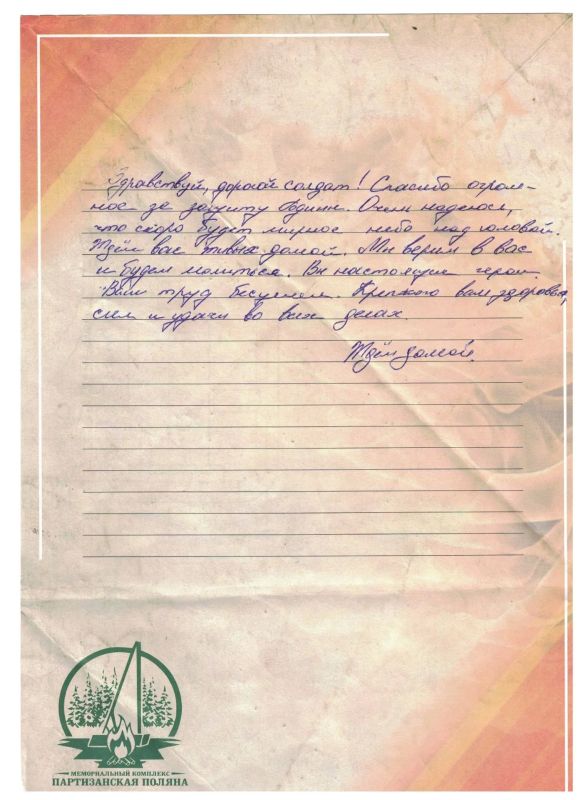 Здравствуй, дорогой солдат! Спасибо огром-
ное за защиту Родины. Очень надеюсь,
что скоро будет мирное небо над головой.
Ждём вас живых домой. Мы верим в вас
и будем молиться. Вы настоящие герои.
Ваш труд бесценен. Крепкого вам здоровья,
сил и удачи во всех делах.
Ждём домой.
МЕМОРИАЛЬНЫЙ КОМПЛЕКС
ПАРТИЗАНСКАЯ ПОЛЯНА